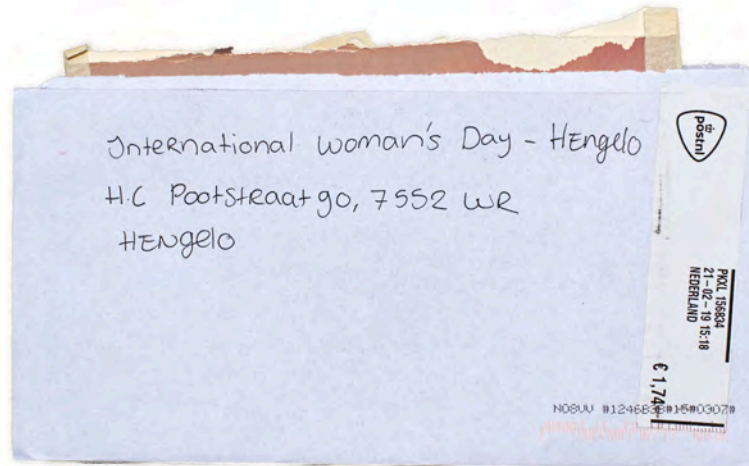 International Woman's Day - Hengelo
H.C Pootstraat 90, 7552 WR
HENgelo
postnl
PKXL 156834
21-02-19 15:18
NEDERLAND
€ 1,74
N08VV